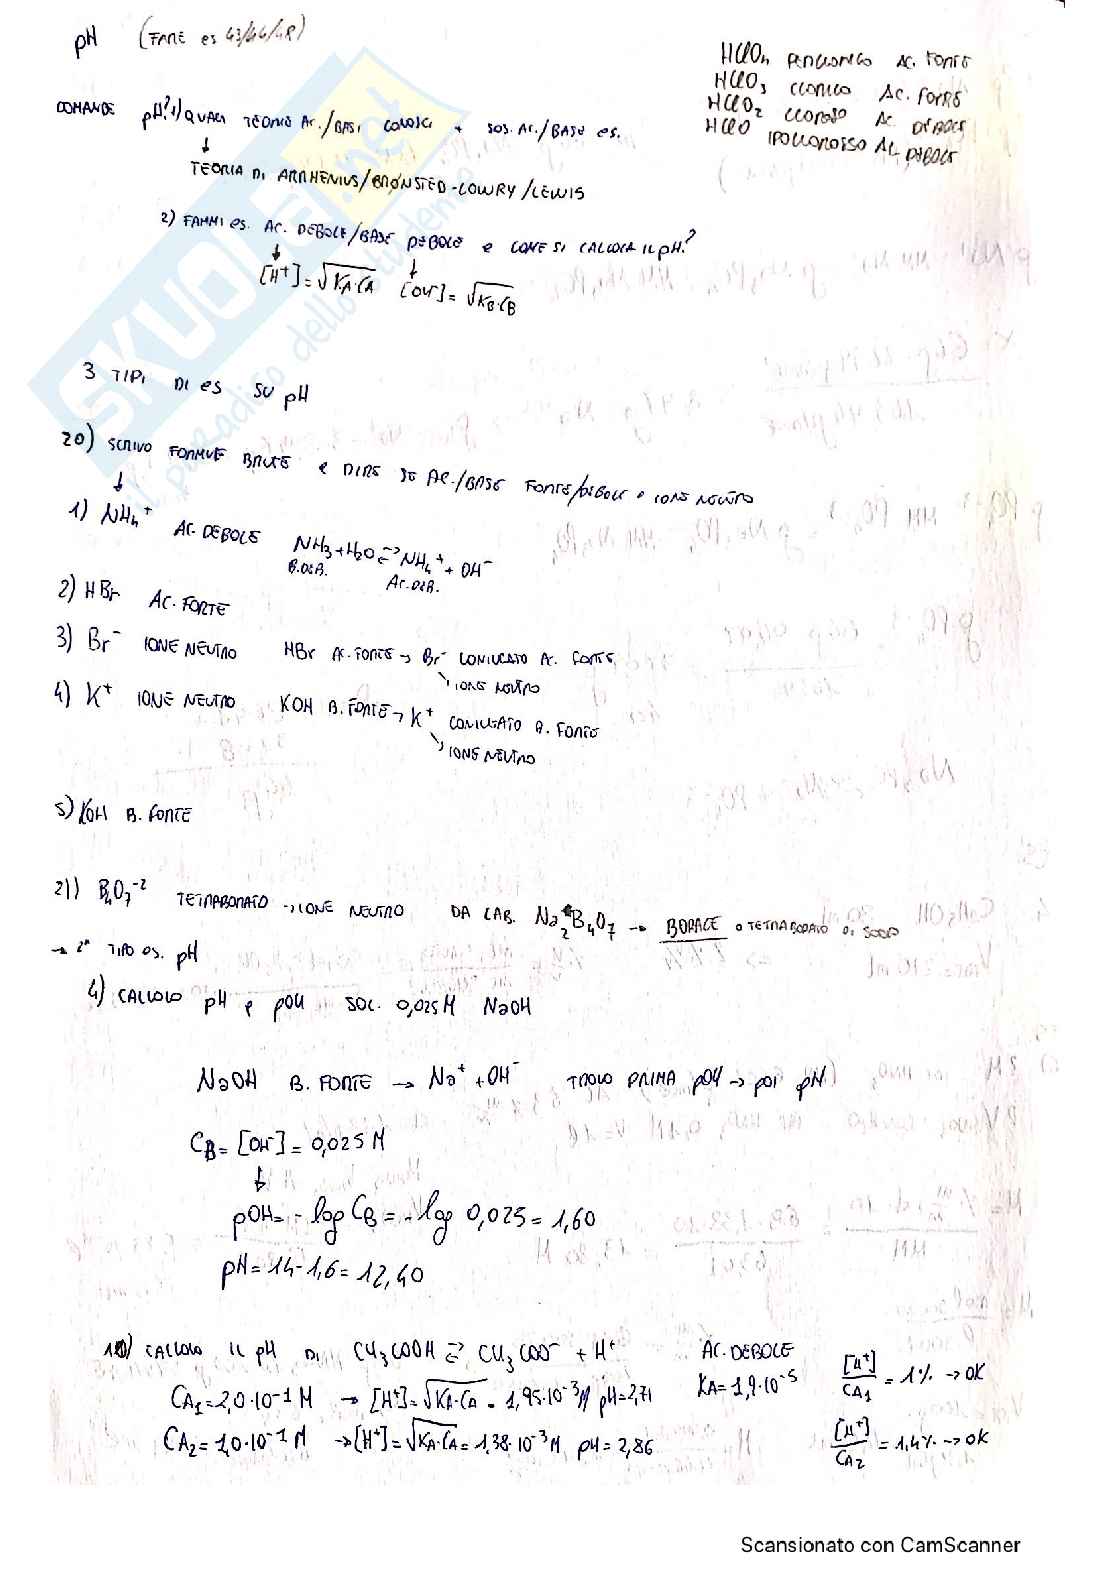 pH (FARE es 43/44/48)
HClO4 PERCLORICO AC. FORTE
HClO3 CLORICO AC. FORTE
HClO2 CLOROSO AC. DEBOLE
HClO IPOCLOROSO AC. DEBOLE
DOMANDE pH? 1) QUALI TEORIE AC./BASI CONOSCI + SOS. AC./BASE es.
↓
TEORIA DI ARRHENIUS/BRØNSTED-LOWRY/LEWIS
2) FAMMI es. AC. DEBOLE/BASE DEBOLE e COME SI CALCOLA IL pH?
[H+]=√KA·CA [OH-]=√KB·CB
3 TIPI DI es SU pH
20) SCRIVO FORMULE BRUTE e DIRE SE AC./BASE FORTE/DEBOLE o IONE NEUTRO
↓
1) NH4+ AC. DEBOLE NH3+H2O⇄NH4+ + OH-
B.DEB. AC.DEB.
2) HBr AC. FORTE
3) Br- IONE NEUTRO HBr AC. FORTE → Br- CONIUGATO AC. FORTE
↘ IONE NEUTRO
4) K+ IONE NEUTRO KOH B. FORTE → K+ CONIUGATO B. FORTE
↘ IONE NEUTRO
5) KOH B. FORTE
21) B4O7-2 TETRABORATO → IONE NEUTRO DA LAB. Na2B4O7 → BORACE o TETRABORATO DI SODIO
→ 2° TIPO es. pH
4) CALCOLO pH e pOH SOL. 0,025M NaOH
NaOH B. FORTE → Na+ + OH- TROVO PRIMA pOH → poi pH
CB = [OH-] = 0,025 M
↓
pOH = -log CB = -log 0,025 = 1,60
pH = 14-1,6 = 12,40
10) CALCOLO IL pH DI CH3COOH ⇄ CH3COO- + H+ AC. DEBOLE
KA = 1,9·10-5
CA1 = 2,0·10-1 M → [H+] = √KA·CA = 1,95·10-3 M pH = 2,71 [H+]/CA1 = 1% → OK
CA2 = 1,0·10-1 M → [H+] = √KA·CA = 1,38·10-3 M pH = 2,86 [H+]/CA2 = 1,4% → OK
SKUOLA.net
il paradiso dello studente
Scansionato con CamScanner